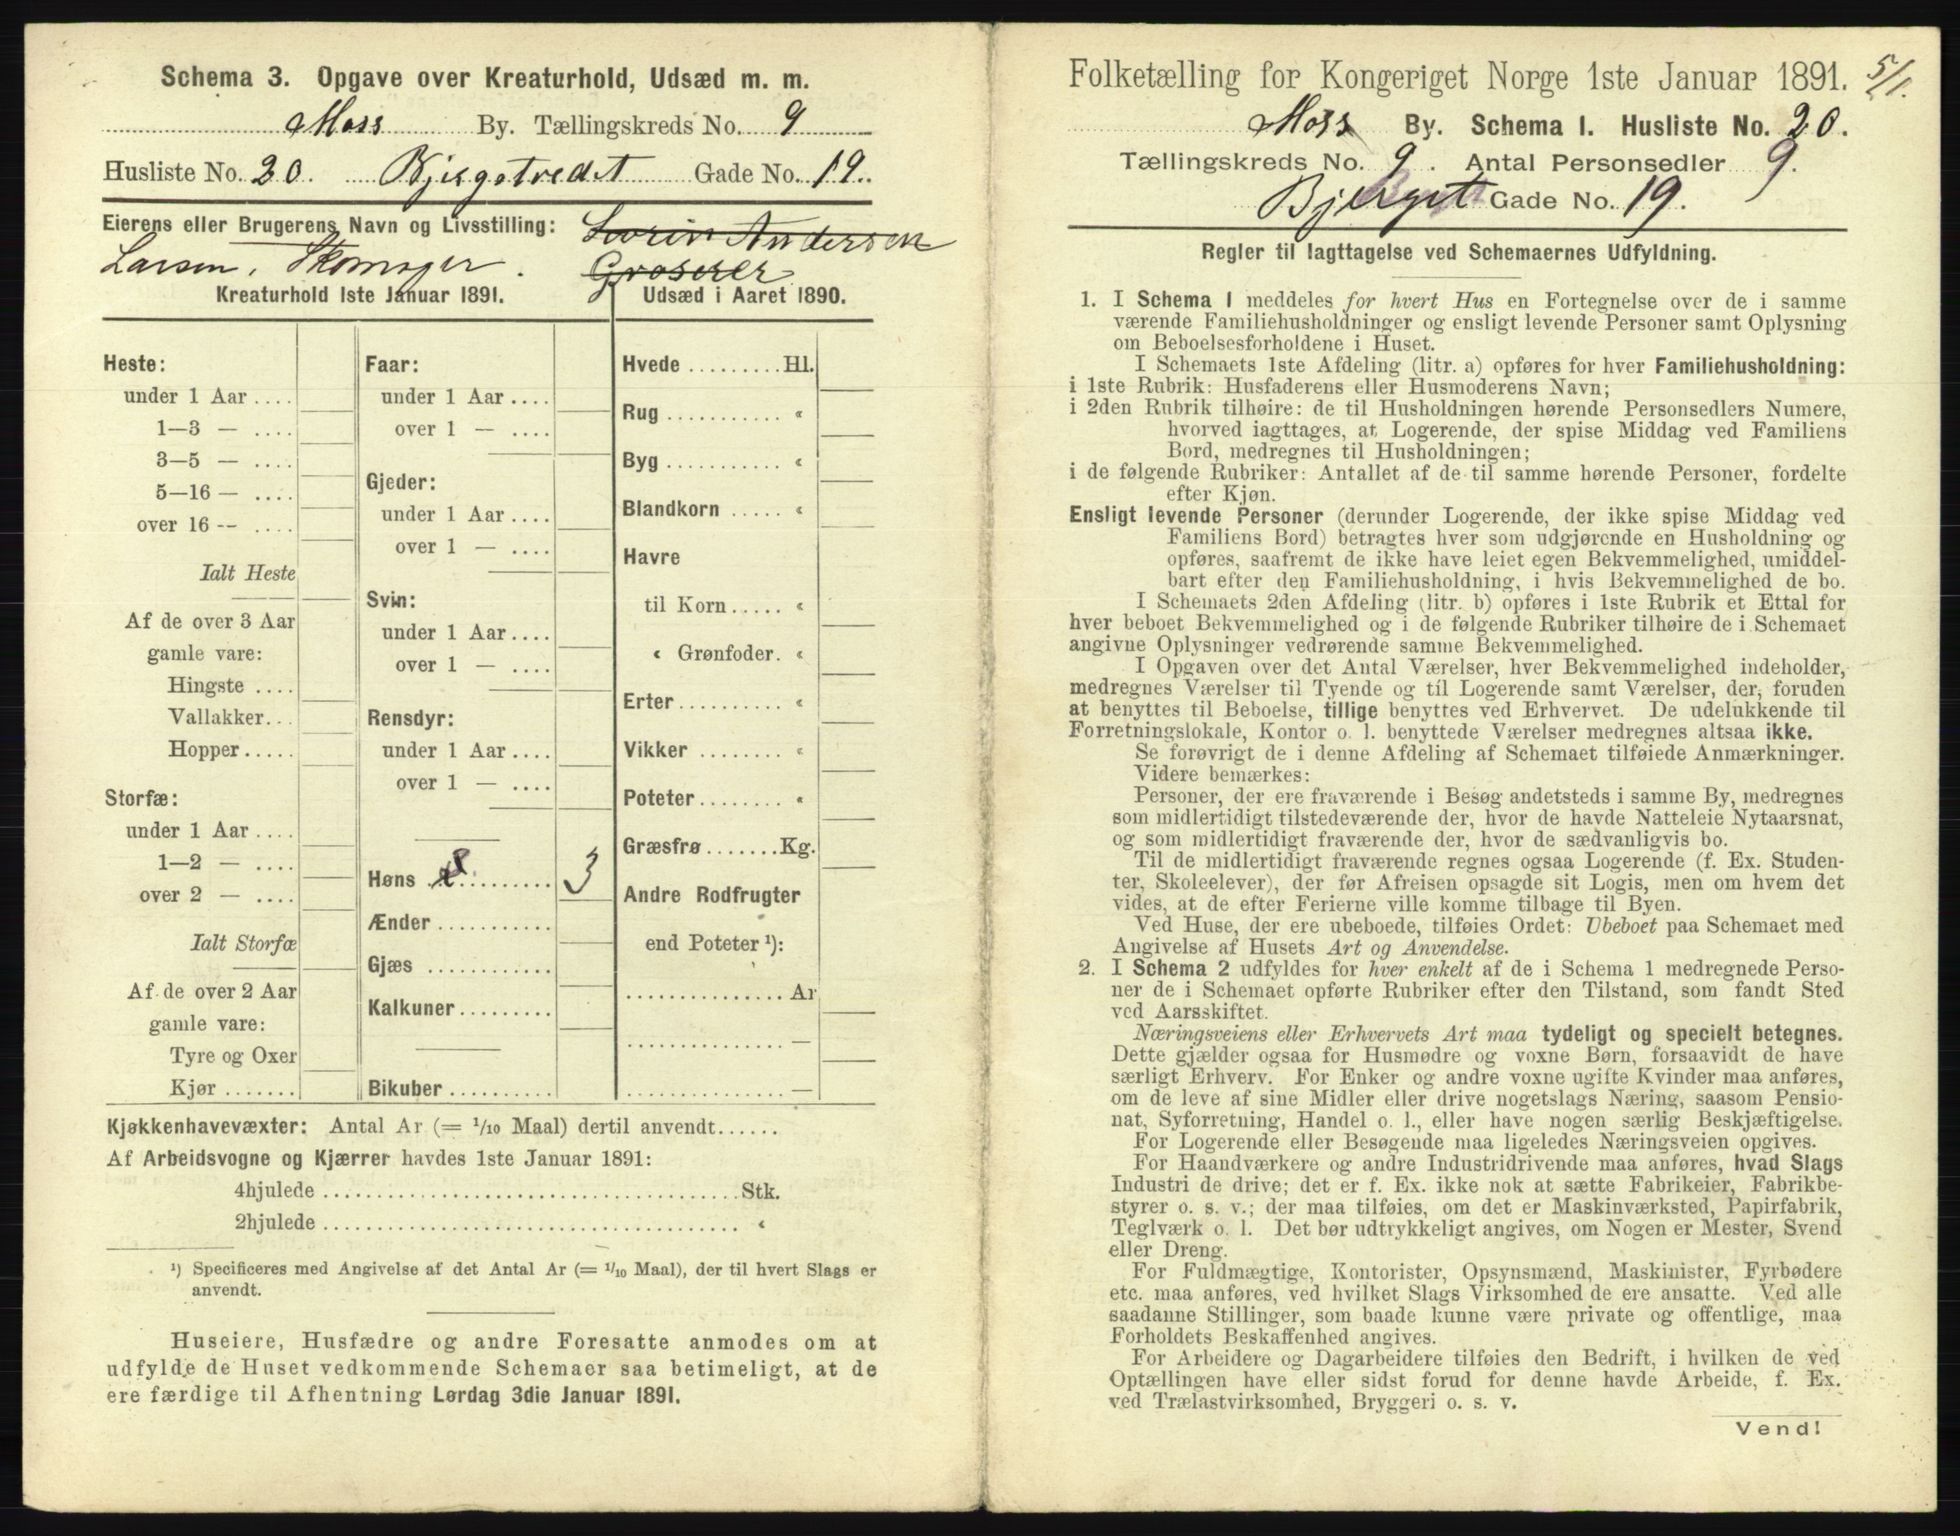 Schema 3. Opgave over Kreaturhold, Udsæd m. m.
Moss By. Tællingskreds No. 9
Husliste No. 20. Bjergstredet Gade No. 19.
Eierens eller Brugerens Navn og Livsstilling: Sørin Andersen
Larsen, Skomager. Groserer
Kreaturhold 1ste Januar 1891.
Heste:
under 1 Aar ....
1—3 — ....
3—5 — ....
5—16 — ....
over 16 -- ....
Ialt Heste
Af de over 3 Aar
gamle vare:
Hingste ....
Vallakker...
Hopper.....
Storfæ:
under 1 Aar ....
1—2 — ....
over 2 — ....
Ialt Storfæ
Af de over 2 Aar
gamle vare:
Tyre og Oxer
Kjør .......
Faar:
under 1 Aar ....
over 1 — ....
Gjeder:
under 1 Aar ....
over 1 — ....
Svin:
under 1 Aar ....
over 1 — ....
Rensdyr:
under 1 Aar ....
over 1 — ....
Høns .......... 3
Ænder ...........
Gjæs ............
Kalkuner.........
Bikuber ..........
Udsæd i Aaret 1890.
Hvede .........Hl.
Rug ........... «
Byg ........... «
Blandkorn ..... «
Havre
til Korn..... «
« Grønfoder. «
Erter.......... «
Vikker ........ «
Poteter........ «
Græsfrø .......Kg.
Andre Rodfrugter
end Poteter ¹):
............... Ar
............... —
............... —
Kjøkkenhavevæxter: Antal Ar (= 1/10 Maal) dertil anvendt......
Af Arbeidsvogne og Kjærrer havdes 1ste Januar 1891:
4hjulede ........................................Stk.
2hjulede ........................................ «
¹) Specificeres med Angivelse af det Antal Ar (= 1/10 Maal), der til hvert Slags er
anvendt.
Huseiere, Husfædre og andre Foresatte anmodes om at
udfylde de Huset vedkommende Schemaer saa betimeligt, at de
ere færdige til Afhentning Lørdag 3die Januar 1891.
Folketælling for Kongeriget Norge 1ste Januar 1891. 5/1.
Moss By. Schema 1. Husliste No. 20.
Tællingskreds No. 9. Antal Personsedler 9.
Bjerget Gade No. 19.
Regler til Iagttagelse ved Schemaernes Udfyldning.
1. I Schema 1 meddeles for hvert Hus en Fortegnelse over de i samme
værende Familiehusholdninger og ensligt levende Personer samt Oplysning
om Beboelsesforholdene i Huset.
I Schemaets 1ste Afdeling (litr. a) opføres for hver Familiehusholdning:
i 1ste Rubrik: Husfaderens eller Husmoderens Navn;
i 2den Rubrik tilhøire: de til Husholdningen hørende Personsedlers Numere,
hvorved iagttages, at Logerende, der spise Middag ved Familiens
Bord, medregnes til Husholdningen;
i de følgende Rubriker: Antallet af de til samme hørende Personer, fordelte
efter Kjøn.
Ensligt levende Personer (derunder Logerende, der ikke spise Middag ved
Familiens Bord) betragtes hver som udgjørende en Husholdning og
opføres, saafremt de ikke have leiet egen Bekvemmelighed, umiddel-
bart efter den Familiehusholdning, i hvis Bekvemmelighed de bo.
I Schemaets 2den Afdeling (litr. b) opføres i 1ste Rubrik et Ettal for
hver beboet Bekvemmelighed og i de følgende Rubriker tilhøire de i Schemaet
angivne Oplysninger vedrørende samme Bekvemmelighed.
I Opgaven over det Antal Værelser, hver Bekvemmelighed indeholder,
medregnes Værelser til Tyende og til Logerende samt Værelser, der, foruden
at benyttes til Beboelse, tillige benyttes ved Erhvervet. De udelukkende til
Forretningslokale, Kontor o. l. benyttede Værelser medregnes altsaa ikke.
Se forøvrigt de i denne Afdeling af Schemaet tilføiede Anmærkninger.
Videre bemærkes:
Personer, der ere fraværende i Besøg andetsteds i samme By, medregnes
som midlertidigt tilstedeværende der, hvor de havde Natteleie Nytaarsnat,
og som midlertidigt fraværende der, hvor de sædvanligvis bo.
Til de midlertidigt fraværende regnes ogsaa Logerende (f. Ex. Studen-
ter, Skoleelever), der før Afreisen opsagde sit Logis, men om hvem det
vides, at de efter Ferierne ville komme tilbage til Byen.
Ved Huse, der ere ubeboede, tilføies Ordet: Ubeboet paa Schemaet med
Angivelse af Husets Art og Anvendelse.
2. I Schema 2 udfyldes for hver enkelt af de i Schema 1 medregnede Perso-
ner de i Schemaet opførte Rubriker efter den Tilstand, som fandt Sted
ved Aarsskiftet.
Næringsveiens eller Erhvervets Art maa tydeligt og specielt betegnes.
Dette gjælder ogsaa for Husmødre og voxne Børn, forsaavidt de have
særligt Erhverv. For Enker og andre voxne ugifte Kvinder maa anføres,
om de leve af sine Midler eller drive nogetslags Næring, saasom Pensio-
nat, Syforretning, Handel o. l., eller have nogen særlig Beskjæftigelse.
For Logerende eller Besøgende maa ligeledes Næringsveien opgives.
For Haandværkere og andre Industridrivende maa anføres, hvad Slags
Industri de drive; det er f. Ex. ikke nok at sætte Fabrikeier, Fabrikbe-
styrer o. s. v.; der maa tilføies, om det er Maskinværksted, Papirfabrik,
Teglværk o. l. Det bør udtrykkeligt angives, om Nogen er Mester, Svend
eller Dreng.
For Fuldmægtige, Kontorister, Opsynsmænd, Maskinister, Fyrbødere
etc. maa anføres, ved hvilket Slags Virksomhed de ere ansatte. Ved alle
saadanne Stillinger, som baade kunne være private og offentlige, maa
Forholdets Beskaffenhed angives.
For Arbeidere og Dagarbeidere tilføies den Bedrift, i hvilken de ved
Optællingen have eller sidst forud for denne havde Arbeide, f. Ex.
ved Trælastvirksomhed, Bryggeri o. s. v.
Vend!